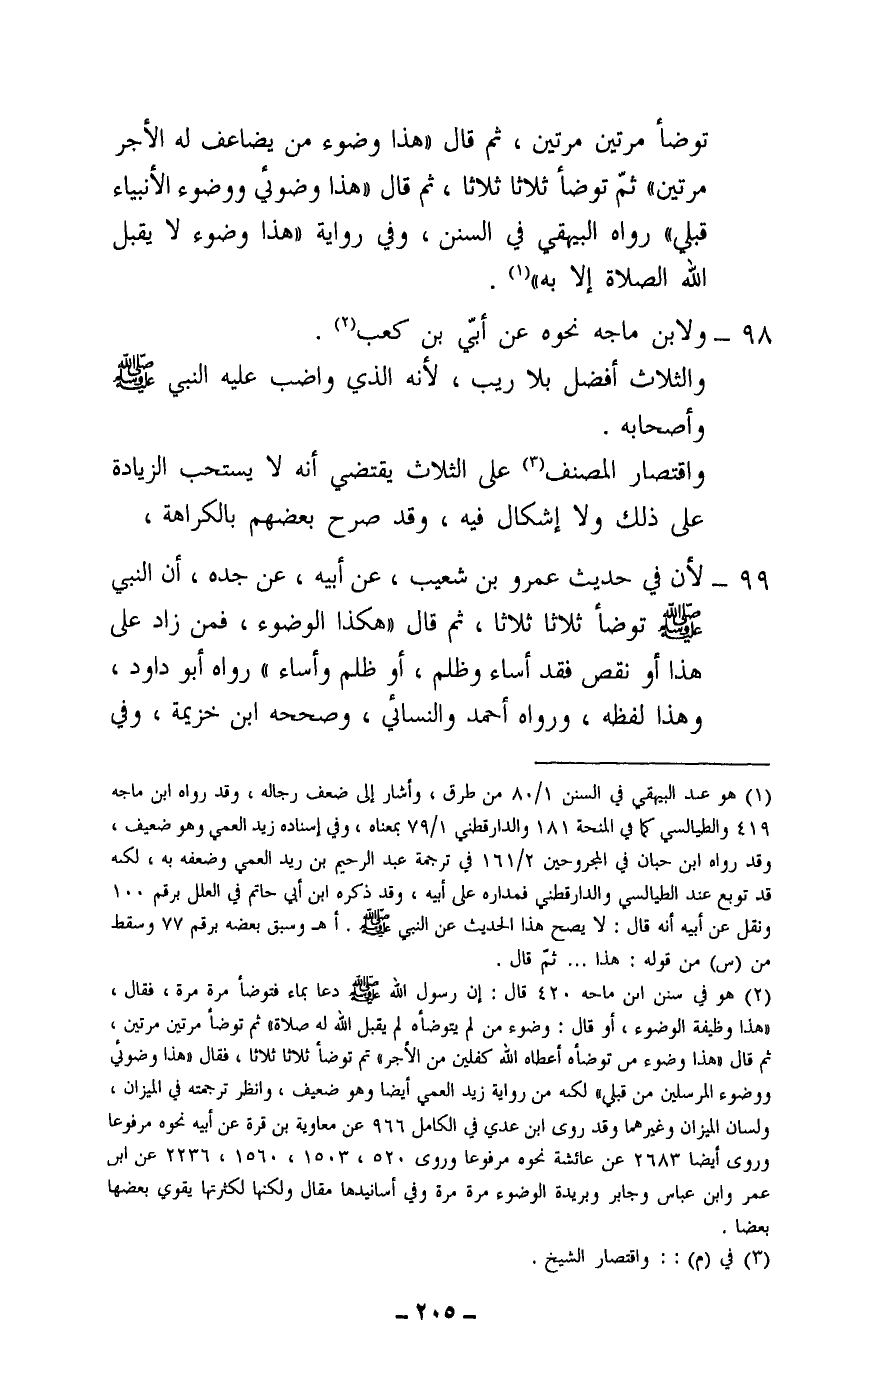 توضأ مرتين مرتين ، ثم قال «هذا وضوء من يضاعف له الأجر
مرتين» ثمّ توضأ ثلاثا ثلاثا ، ثم قال «هذا وضوئي ووضوء الأنبياء
قبلي» رواه البيهقي في السنن ، وفي رواية «هذا وضوء لا يقبل
الله الصلاة إلا به»(١) .
٩٨ ـ ولابن ماجه نحوه عن أبيّ بن كعب(٢) .
والثلاث أفضل بلا ريب ، لأنه الذي واضب عليه النبي ﷺ
وأصحابه .
واقتصار المصنف(٣) على الثلاث يقتضي أنه لا يستحب الزيادة
على ذلك ولا إشكال فيه ، وقد صرح بعضهم بالكراهة ،
٩٩ ـ لأن في حديث عمرو بن شعيب ، عن أبيه ، عن جده ، أن النبي
ﷺ توضأ ثلاثا ثلاثا ، ثم قال «هكذا الوضوء ، فمن زاد على
هذا أو نقص فقد أساء وظلم ، أو ظلم وأساء » رواه أبو داود ،
وهذا لفظه ، ورواه أحمد والنسائي ، وصححه ابن خزيمة ، وفي
(١) هو عند البيهقي في السنن ٨٠/١ من طرق ، وأشار إلى ضعف رجاله ، وقد رواه ابن ماجه
٤١٩ والطيالسي كما في المنحة ١٨١ والدارقطني ٧٩/١ بمعناه ، وفي إسناده زيد العمي وهو ضعيف ،
وقد رواه ابن حبان في المجروحين ١٦١/٢ في ترجمة عبد الرحيم بن زيد العمي وضعفه به ، لكنه
قد توبع عند الطيالسي والدارقطني فمداره على أبيه ، وقد ذكره ابن أبي حاتم في العلل برقم ١٠٠
ونقل عن أبيه أنه قال : لا يصح هذا الحديث عن النبي ﷺ . أ هـ وسبق بعضه برقم ٧٧ وسقط
من (س) من قوله : هذا ... ثمّ قال .
(٢) هو في سنن ابن ماجه ٤٢٠ قال : إن رسول الله ﷺ دعا بماء فتوضأ مرة مرة ، فقال ،
«هذا وظيفة الوضوء ، أو قال : وضوء من لم يتوضأه لم يقبل الله له صلاة» ثم توضأ مرتين مرتين ،
ثم قال «هذا وضوء من توضأه أعطاه الله كفلين من الأجر» ثم توضأ ثلاثا ثلاثا ، فقال «هذا وضوئي
ووضوء المرسلين من قبلي» لكنه من رواية زيد العمي أيضا وهو ضعيف ، وانظر ترجمته في الميزان ،
ولسان الميزان وغيرهما وقد روى ابن عدي في الكامل ٩٦٦ عن معاوية بن قرة عن أبيه نحوه مرفوعا
وروى أيضا ٢٦٨٣ عن عائشة نحوه مرفوعا وروى ٥٢٠ ، ١٥٠٣ ، ١٥٦٠ ، ٢٢٣٦ عن ابن
عمر وابن عباس وجابر وبريدة الوضوء مرة مرة وفي أسانيدها مقال ولكنها لكثرتها يقوي بعضها
بعضا .
(٣) في (م) : : واقتصار الشيخ .
ـ ٢٠٥ ـ